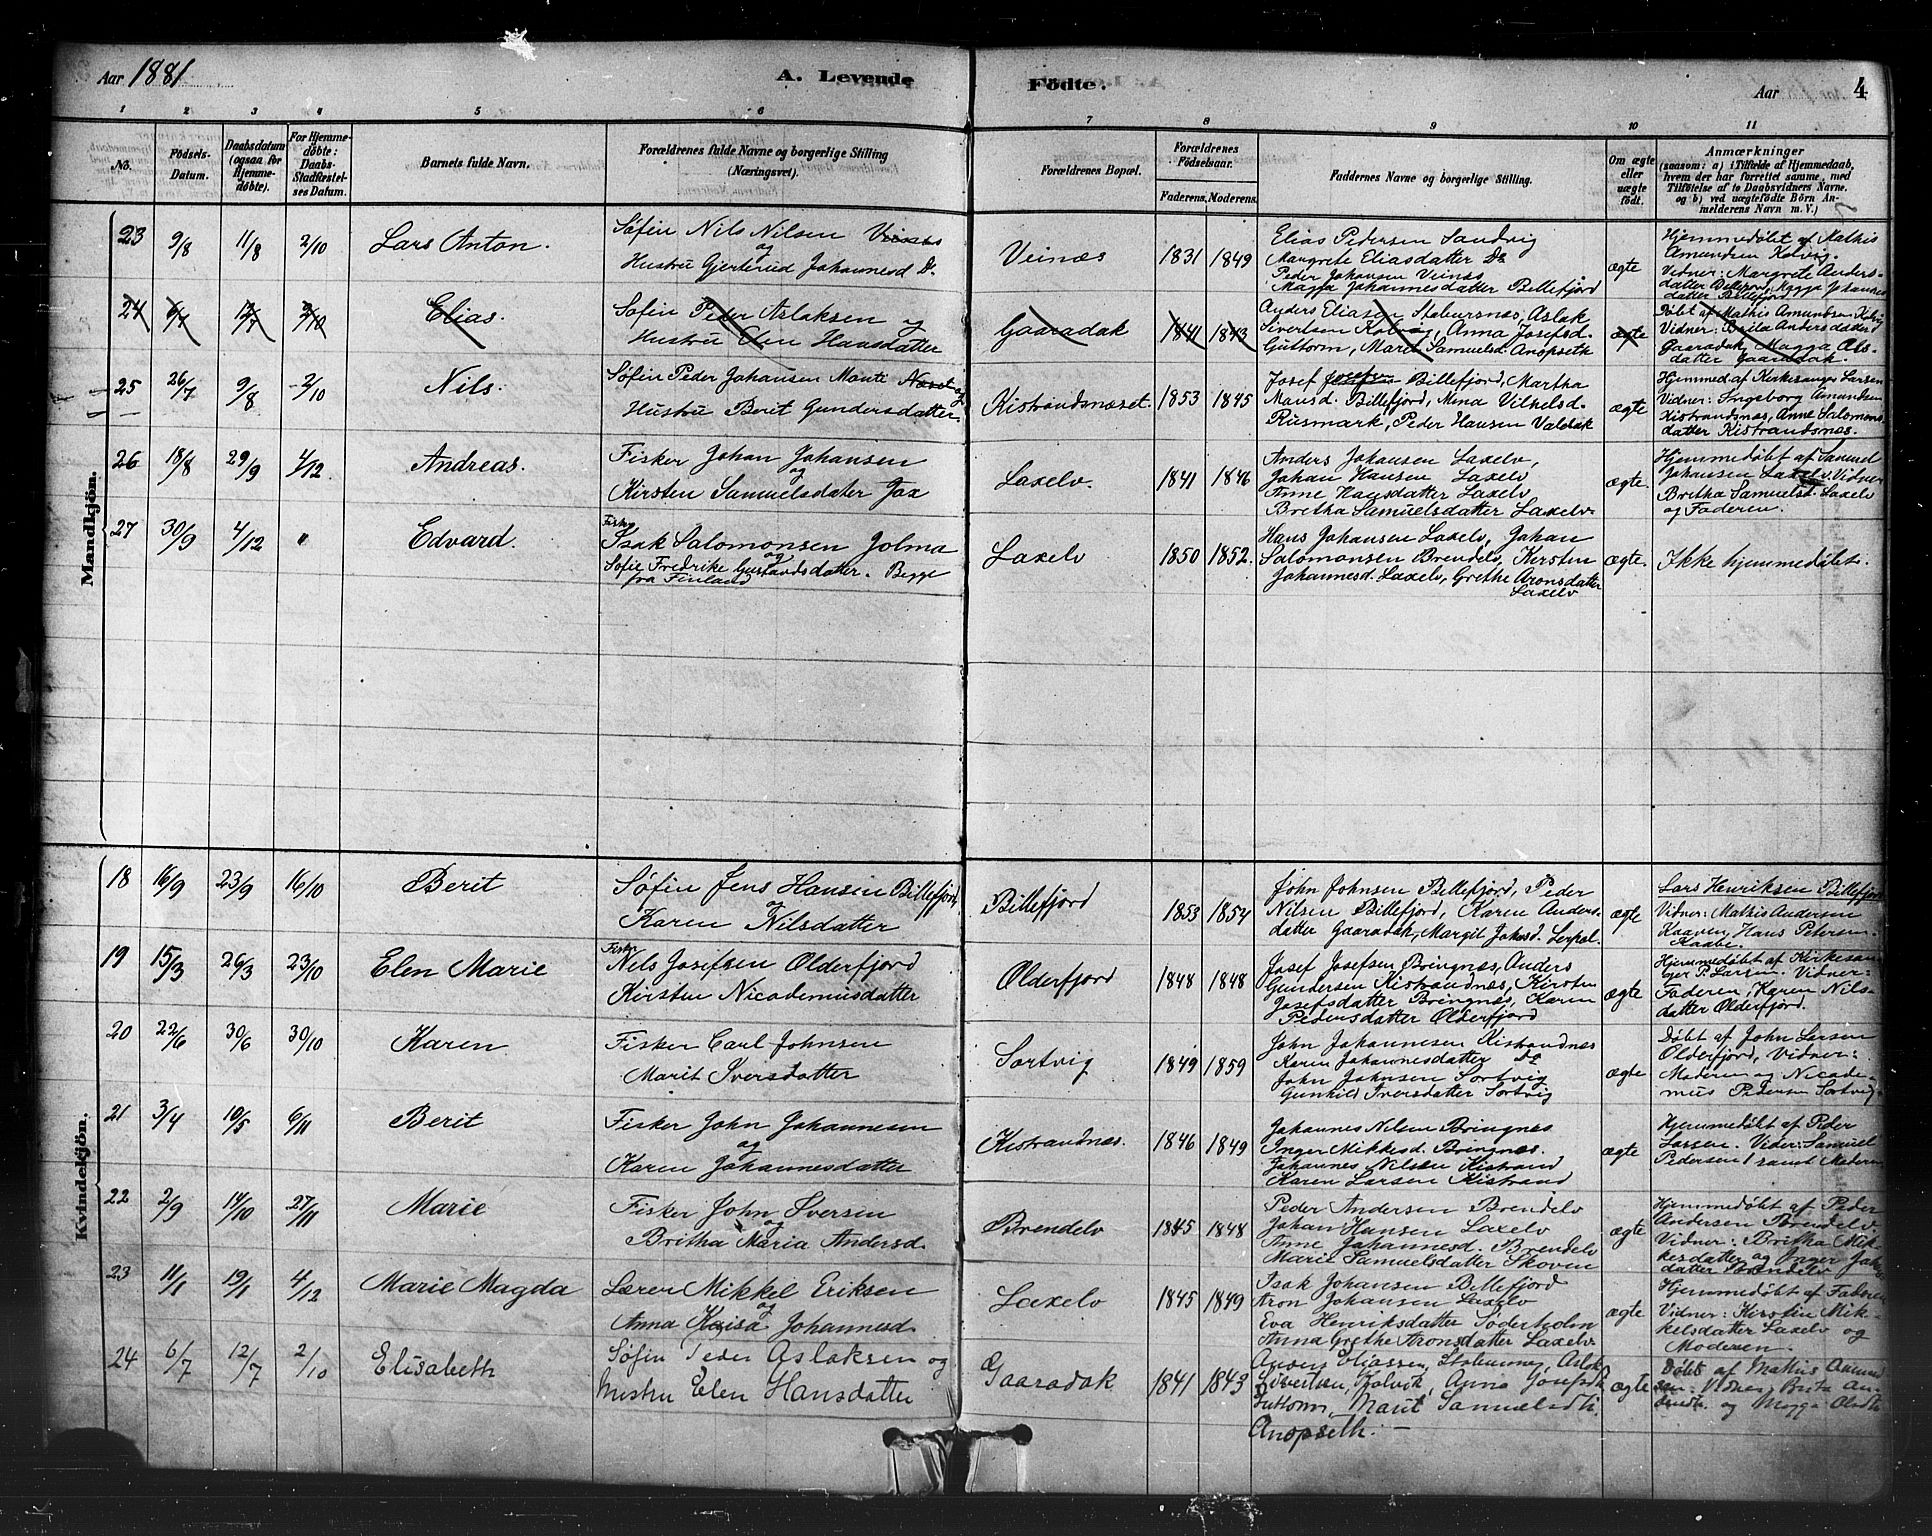 Aar 1881
A. Levende
Födte.
Aar 4
1 2 3 4 5 6 7 8 9 10 11
No.
Födsels-
Datum.
Daabsdatum
(ogsaa for
Hjemme-
döbte).
For Hjemme-
döbte:
Daabs-
Stadfæstel-
ses Datum.
Barnets fulde Navn.
Forældrenes fulde Navne og borgerlige Stilling
(Næringsvei).
Forældrenes Bopæl.
Forældrenes
Födselsaar.
Faderens. Moderens.
Faddernes Navne og borgerlige Stilling.
Om ægte
eller
uægte
födt.
Anmærkninger
(saasom: a) i Tilfælde af Hjemmedaab,
hvem der har forrettet samme, med
Tilföielse af to Daabsvidners Navne,
og b) ved uægtefödte Börn An-
melderens Navn m. V.)
Mandkjön.
23 9/8 11/8 2/10 Lars Anton.
Søfin Nils Nilsen Veines
og
Hustru Gjertrud Johannesd Do
Veinæs 1831 1849
Elias Pedersen Sandvig
Margrete Eliasdatter Do
Peder Johansen Veinæs
Magga Johannesdatter Billefjord
ægte
Hjemmedøbt af Mathis
Amundsen Kolvig.
Vidner: Margrete Anders-
datter Billefjord, Magga Johannes
datter Billefjord
24 6/7 12/7 2/10 Elias.
Søfin Peder Aslaksen og
Hustru Elen Hansdatter
Gaaradak 1841 1843
Anders Eliasen Stabursnæs, Aslak
Sivertsen Kolvig, Anna Josefsd.
Guttorm, Marit Samuelsd. Anopseth
ægte
Døbt af Mathis Amundsen Kolvig
Vidner: Brita Andersdatter
Gaaradak, Magga Ols-
datter Gaaradak.
25 26/7 9/8 2/10 Nils.
Søfin Peder Johansen Monti Næset og
Hustru Berit Gundersdatter.
Kistrandsnæset. 1853 1845
Josef Josefsen Billefjord, Martha
Mansd. Billefjord, Mina Vilhelsd.
Rusmark, Peder Hansen Valdak
ægte
Hjemmed af Kirkesanger Larsen
Vidner: Ingeborg Amundsen
Kistrandsnæs, Anne Salomons-
datter Kistrandsnæs.
26 18/8 29/9 4/12 Andreas.
Fisker Johan Johansen
og
Kirsten Samuelsdater Jax
Laxelv. 1841 1846
Anders Johansen Laxelv,
Johan Hansen Laxelv
Anne Hansdatter Laxelv
Bretha Samuelsdatter Laxelv
ægte.
Hjemmedøbt af Samuel
Johansen Laxelv. Vidner
Bretha Samuelsd. Laxelv
og Faderen.
27 30/9 4/12 " Edvard.
Fisker
Isak Salomonsen Jolma
og
Sofie Fredrike Gustavdsdatter. Begge
fra Finland
Laxelv 1850 1852.
Hans Johansen Laxelv, Johan
Salomonsen Brendelv, Kersten
Johannesd. Laxelv, Grethe Aronsdatter
Laxelv
ægte.
Ikke hjemmedøbt.
Kvindekjön.
18 16/9 23/9 16/10 Berit
Søfin Jens Hansen Billefjord
og
Karen Nilsdatter
Billefjord 1853 1854
John Johnsen Billefjord, Peder
Nilsen Billefjord, Karen Anders-
datter Gaaradak, Margit Johsd. Lerpol.
ægte
Lars Henriksen Billefjord
Vidner: Mathis Andersen
Kaaven, Hans Petersen
Kaabe.
19 15/3 26/3 23/10 Elen Marie
Fisker
Nils Josefsen Olderfjord
Kirsten Nicodemusdatter
Olderfjord 1848 1848
Josef Josefsen Bringnæs, Anders
Gundersen Kistrandnæs, Kirsten
Josefsdatter Bringnæs, Karen
Pedersdatter Olderfjord
ægte
Hjemmedøbt af Kirkesan-
ger P. Larsen. Vidner:
Faderen, Karen Nils-
datter Olderfjord.
20 22/6 30/6 30/10 Karen
Fisker Carl Johnsen
Marit Iversdatter
Sortvig 1849 1859
John Johannesen Kistrandnæs
Karen Johannesdatter Do
John Johnsen Sortvig
Gunhild Iversdatter Sortvig
ægte
Døbt af John Larsen
Olderfjord, Vidner:
Moderen og Nicode-
mus Pedersen Sortvig
21 3/4 10/5 6/11 Berit
Fisker John Johannesen
og
Karen Johannesdatter
Kistrandnæs. 1846 1849
Johannes Nilsen Bringnes
Inger Mikkelsd. Bringnæs.
Johannes Nilsen Kistrand
Karen Larsen Kistrand
ægte
Hjemmedøbt af Peder
Larsen. Vider: Samuel
Pedersen samt Moderen
22 2/9 14/10 27/11 Marie
Fisker John Iversen
og
Britha Maria Andersd.
Brendelv 1845 1848
Peder Andersen Brendelv
Johan Hansen Laxelv
Anne Johannesd. Brendelv
Marie Samuelsdatter Skoven
ægte
Hjemmedøbt af Peder
Andersen Brendelv
Vidner: Britha Mik-
kelsdatter og Inger Johns-
datter Brendelv
23 11/1 19/1 4/12 Marie Magda
Lærer Mikkel Eriksen
og
Anna Kaisa Johannesd.
Laxelv 1845 1849
Isak Johansen Billefjord
Aron Johansen Laxelv
Eva Henriksdatter Soderholm
Anna Grethe Aronsdatter Laxelv
ægte
Hjemmedøbt af Faderen
Vidner: Kirstin Mik-
kelsdatter Laxelv og
Moderen.
24 6/7 12/7 2/10 Elisabeth
Søfin Peder Aslaksen og
Hustru Elen Hansdatter
Gaaradak 1841 1843
Anders Eliassen, Stabursnæs, Aslak
Sivertsen, Kolvik, Anna Josefsdt
Guttorm, Marit Samuelsdtr.
Anopseth.
ægte
Døbt af Mathis Amund
sen. Vidner, Brita An-
dersdt. og Magga Olsdtr